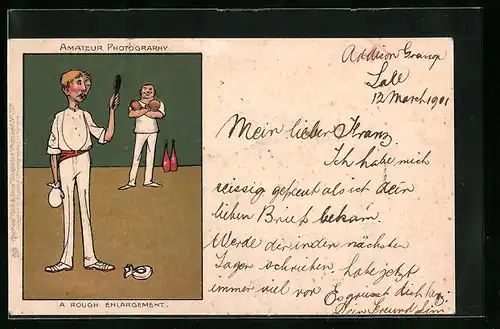 AMATEUR PHOTOGRAPHY.
A ROUGH ENLARGEMENT.
Addison Grange
Sale
12 March 1901
Mein lieber Franz.
Ich habe mich
reissig gefreut als ich dein
lieben Brief bekam.
Werde dir in den nächsten
Tagen schrieben, habe jetzt
immer viel vor Es grüsst dich herz.
Dein Freund